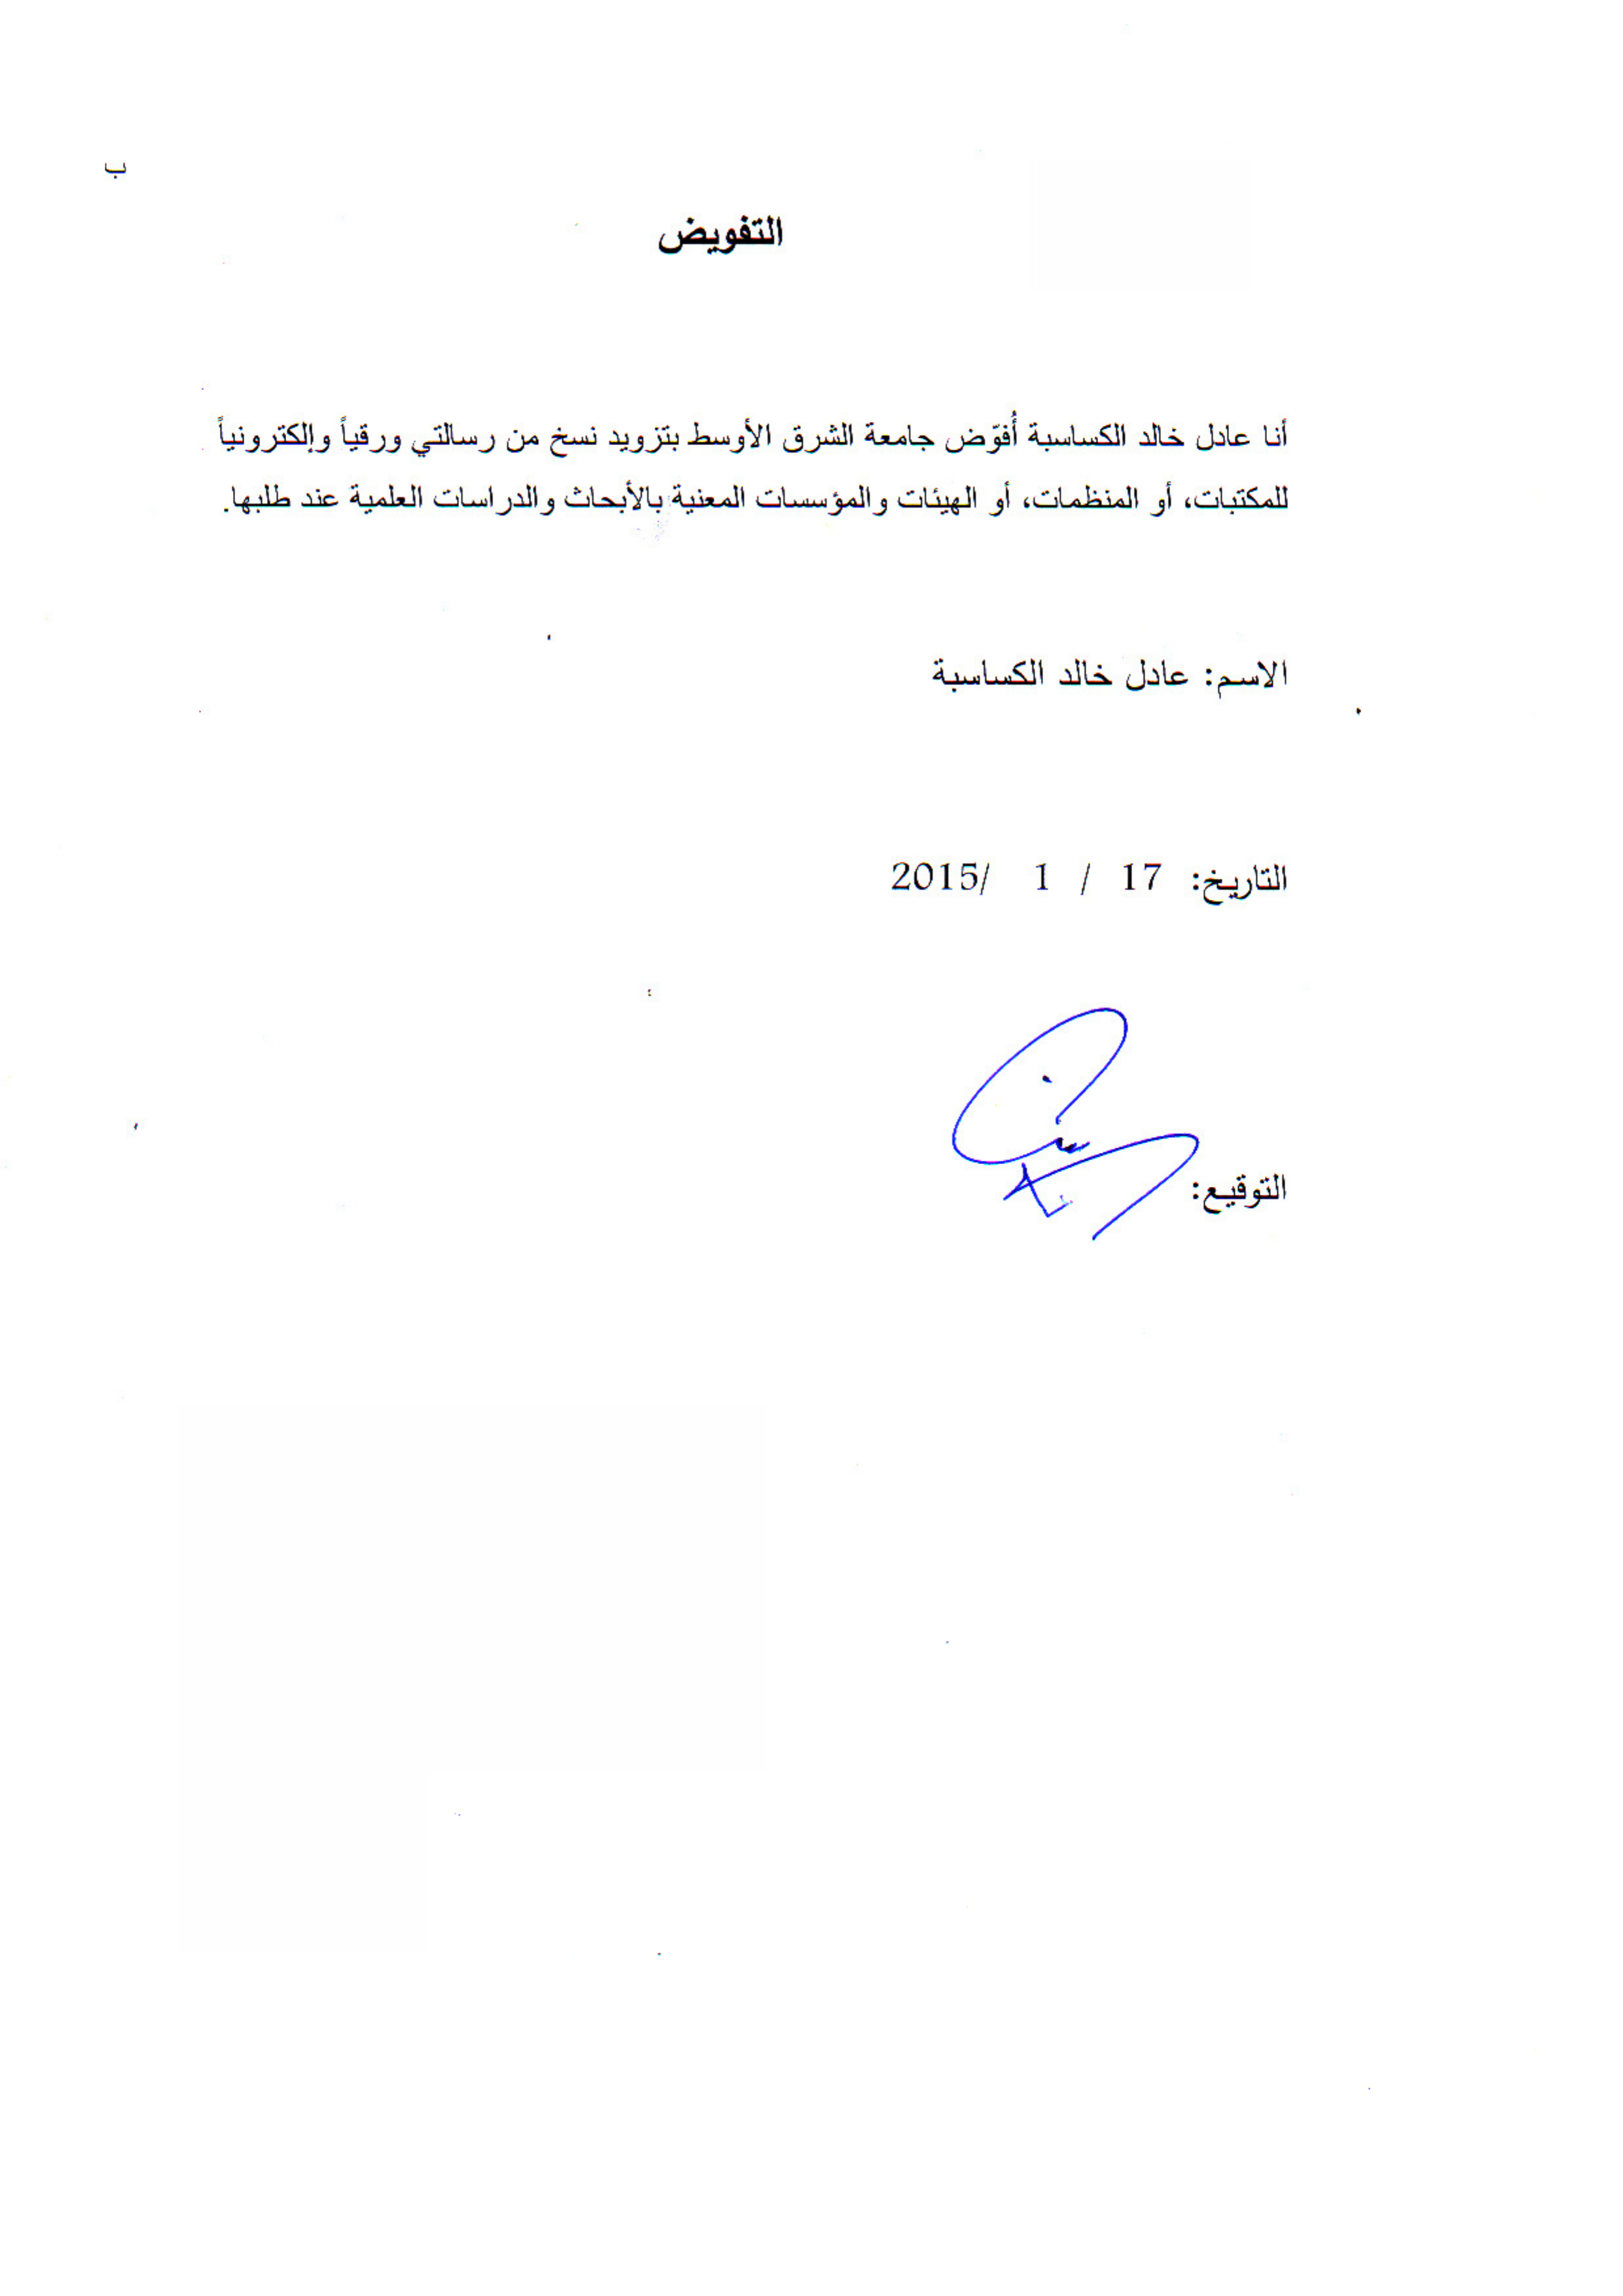 ب
التفويض
أنا عادل خالد الكساسبة أُفوّض جامعة الشرق الأوسط بتزويد نسخ من رسالتي ورقياً وإلكترونياً
للمكتبات، أو المنظمات، أو الهيئات والمؤسسات المعنية بالأبحاث والدراسات العلمية عند طلبها.
الاسم: عادل خالد الكساسبة
التاريخ: 17 / 1 /2015
التوقيع: